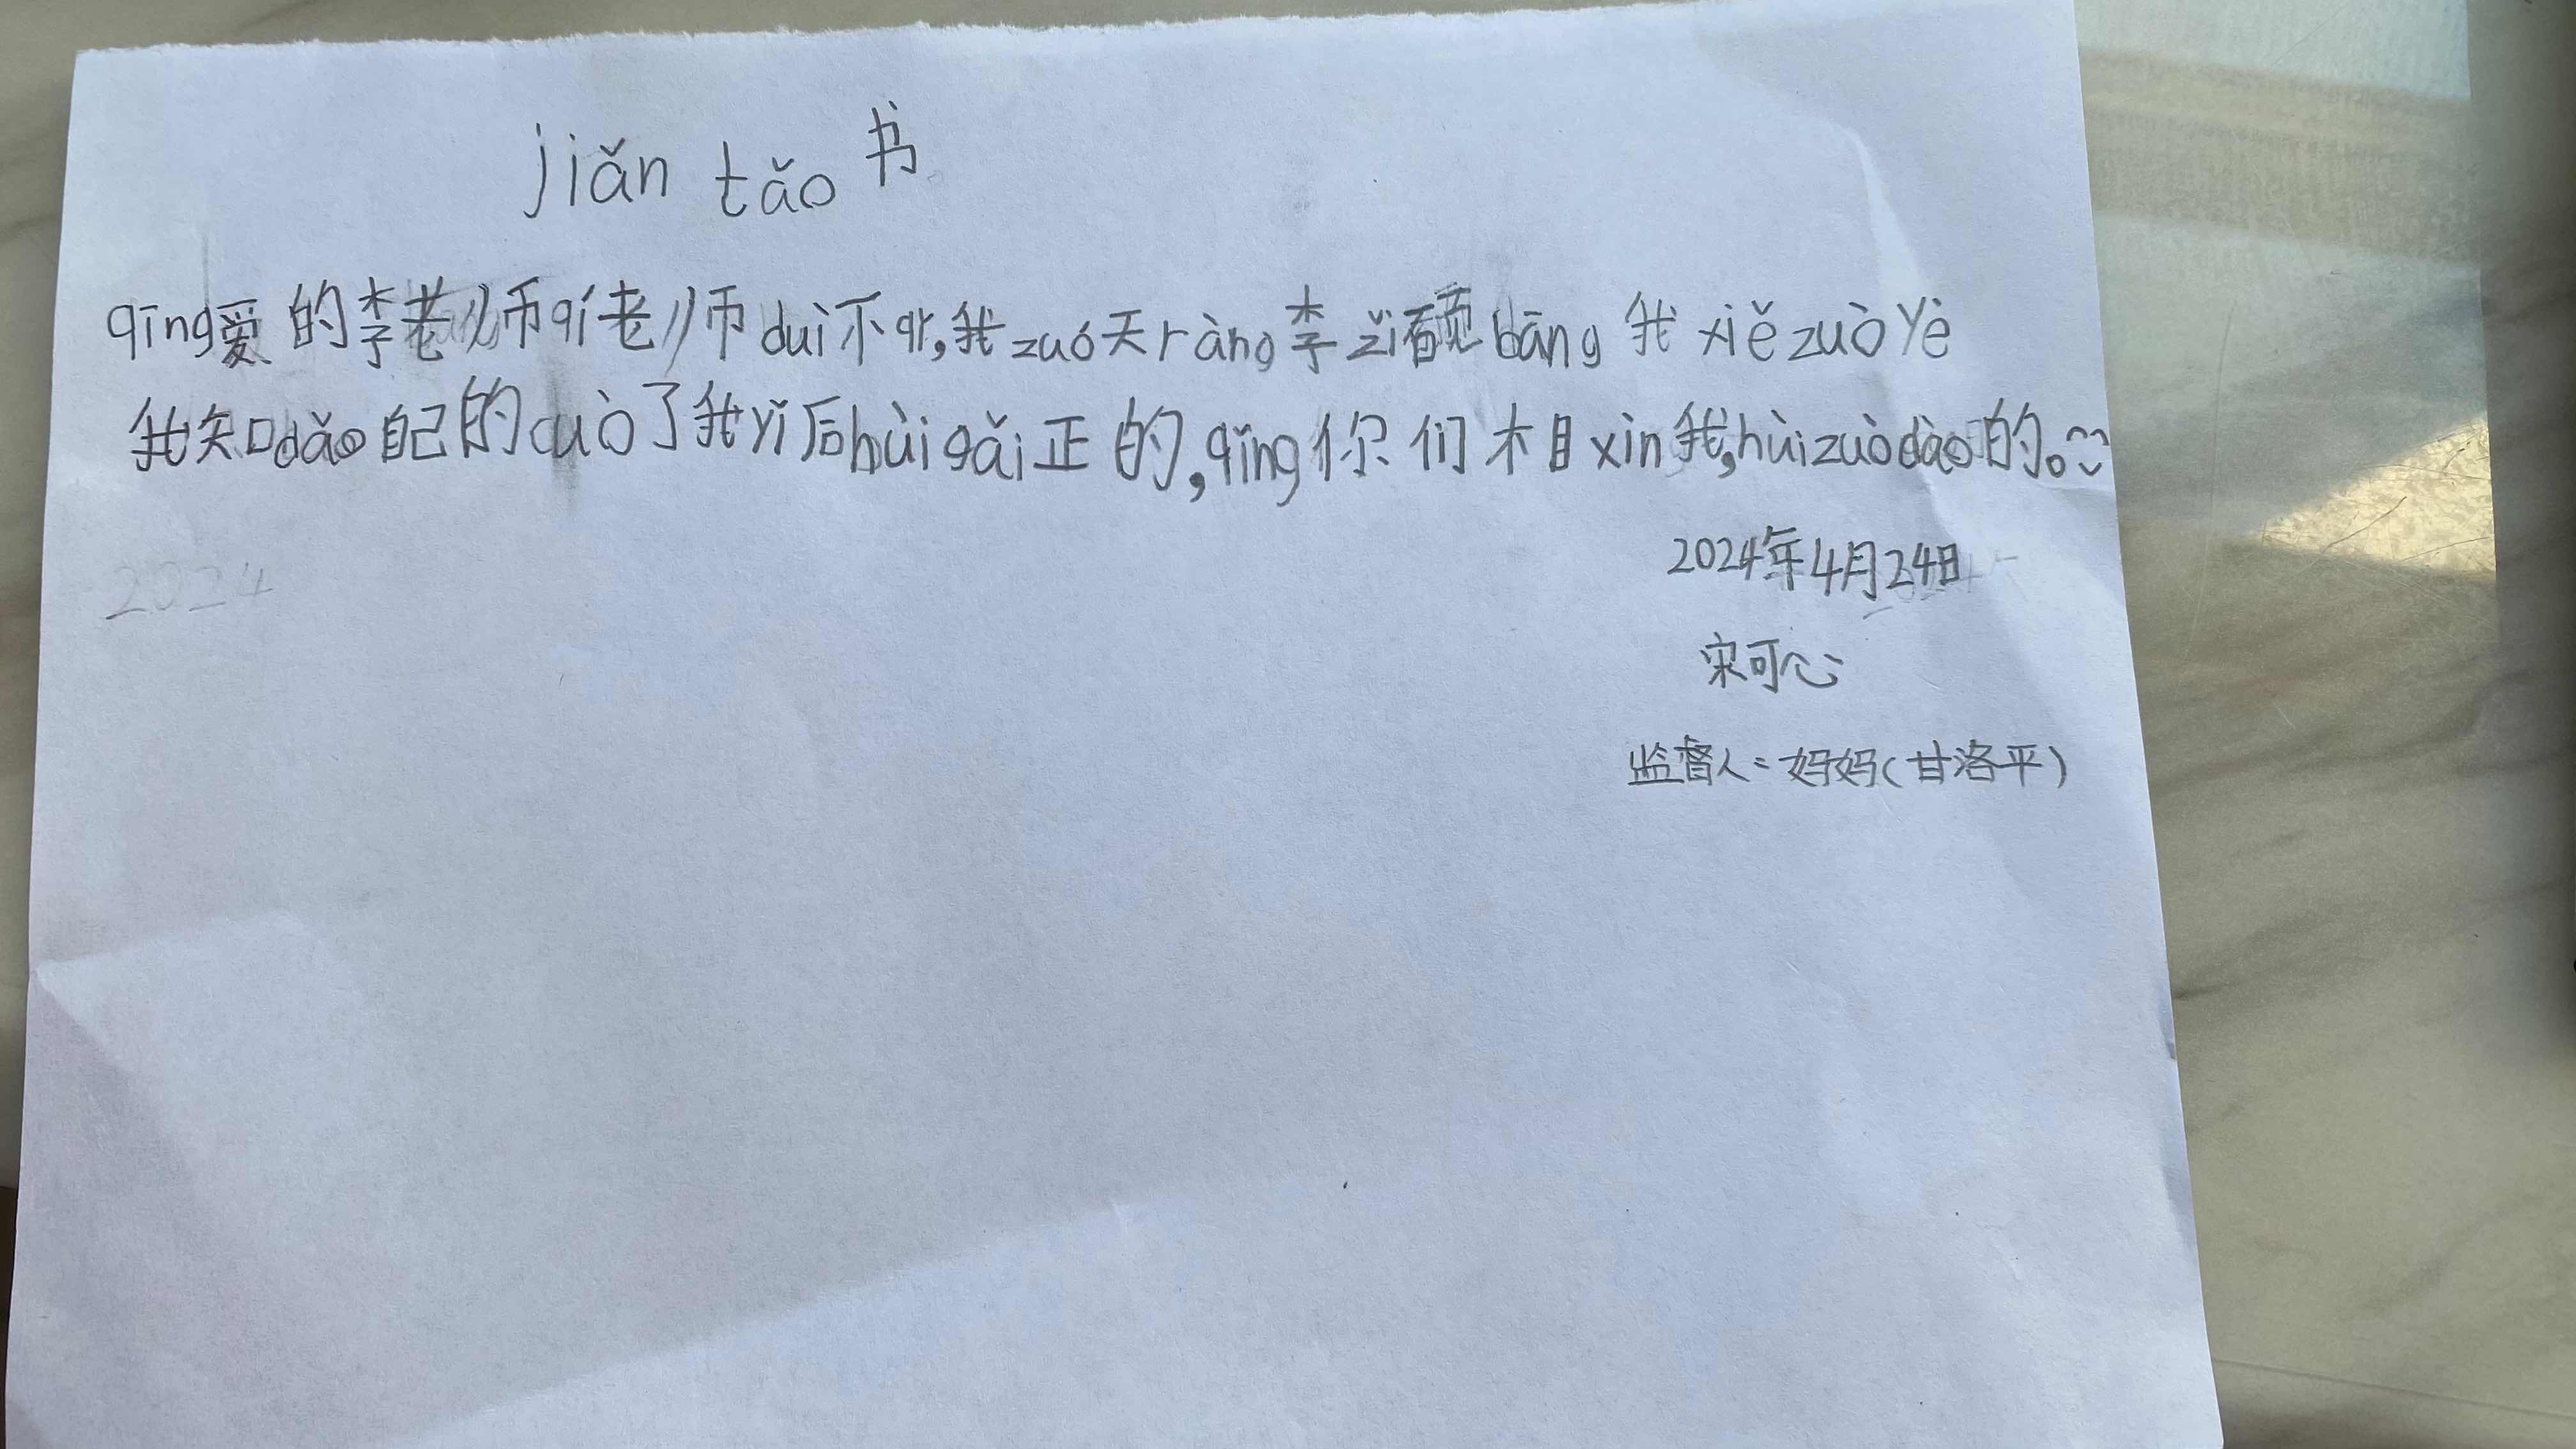 jiǎn tǎo 书
qīng爱的李老师qí老师duì不qǐ,我zuó天ràng李zǐ硕bāng我xiězuòyè
我知dǎo自己的cuò了我yǐ后hùigǎi正的,qǐng你们相xìn我,hùizuòdào的。
2024年4月24日
2024
宋可心
监督人:妈妈(甘洛平)